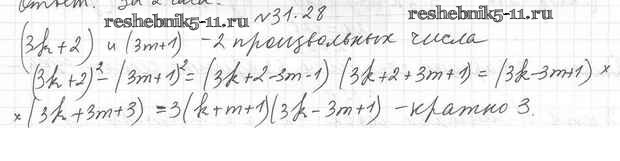 Ответ: за 2 часа.
reshebnik5-11.ru №31.28 reshebnik5-11.ru
(3k+2) и (3m+1) - 2 произвольных числа
(3k+2)²-(3m+1)²=(3k+2-3m-1)(3k+2+3m+1)=(3k-3m+1)×
×(3k+3m+3)=3(k+m+1)(3k-3m+1) - кратно 3.